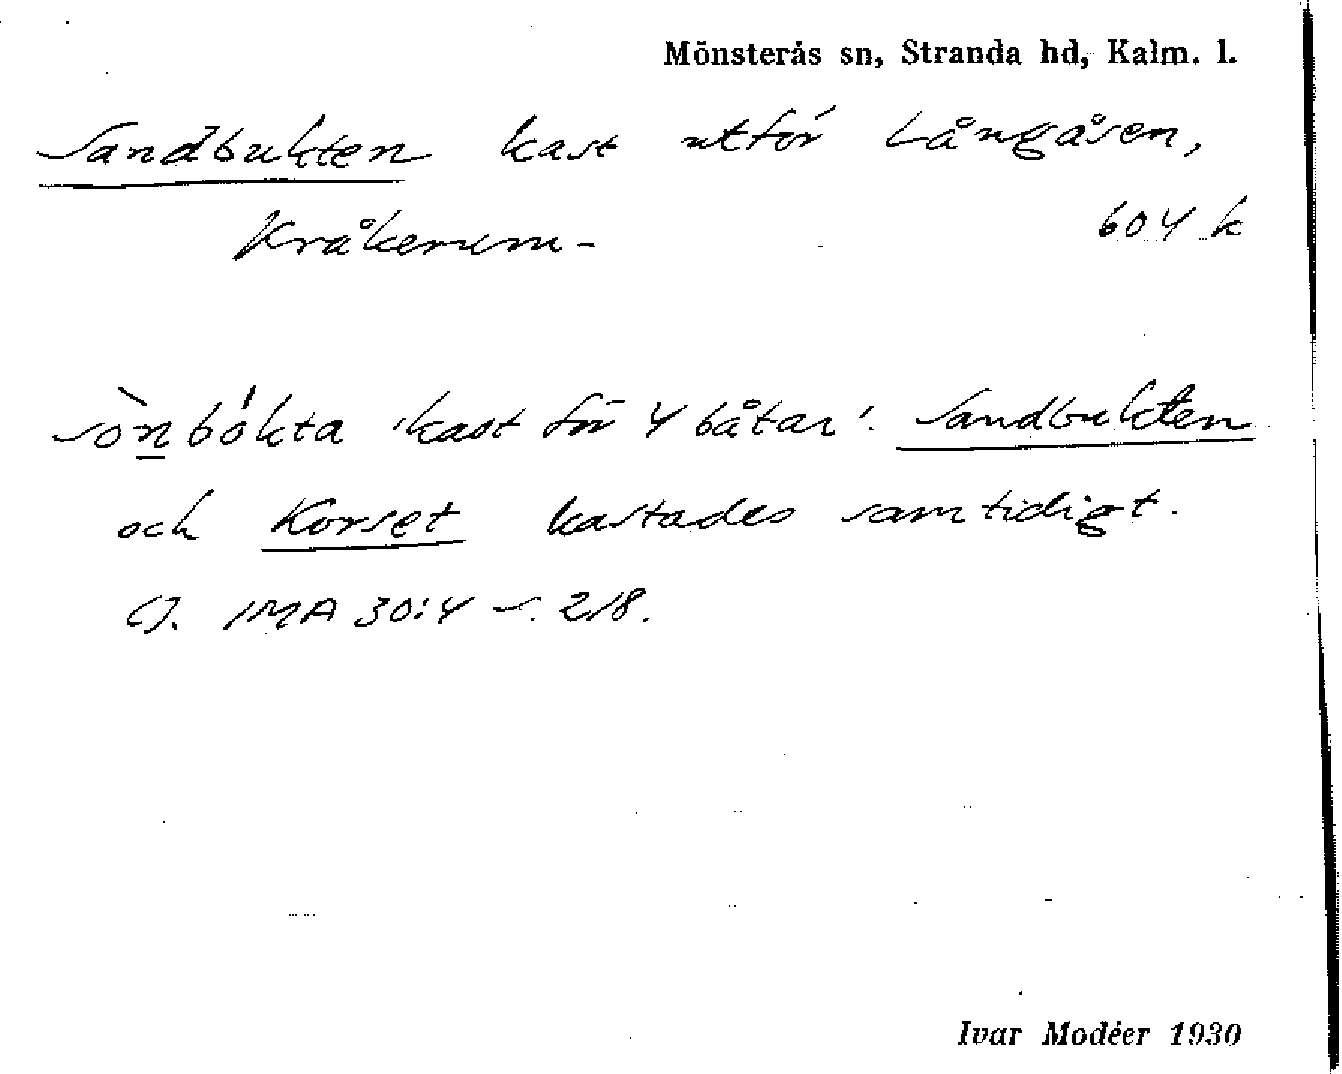 Mönsterås sn, Stranda hd, Kalm. l.
Sandbukten kast utför Långåsen,
Kråkerum- 604 k
sònbókta 'kast för 4 båtar'. Sandbukten
och Korset kastades samtidigt.
CJ. IMA 30:4 s. 218.
Ivar Modéer 1930